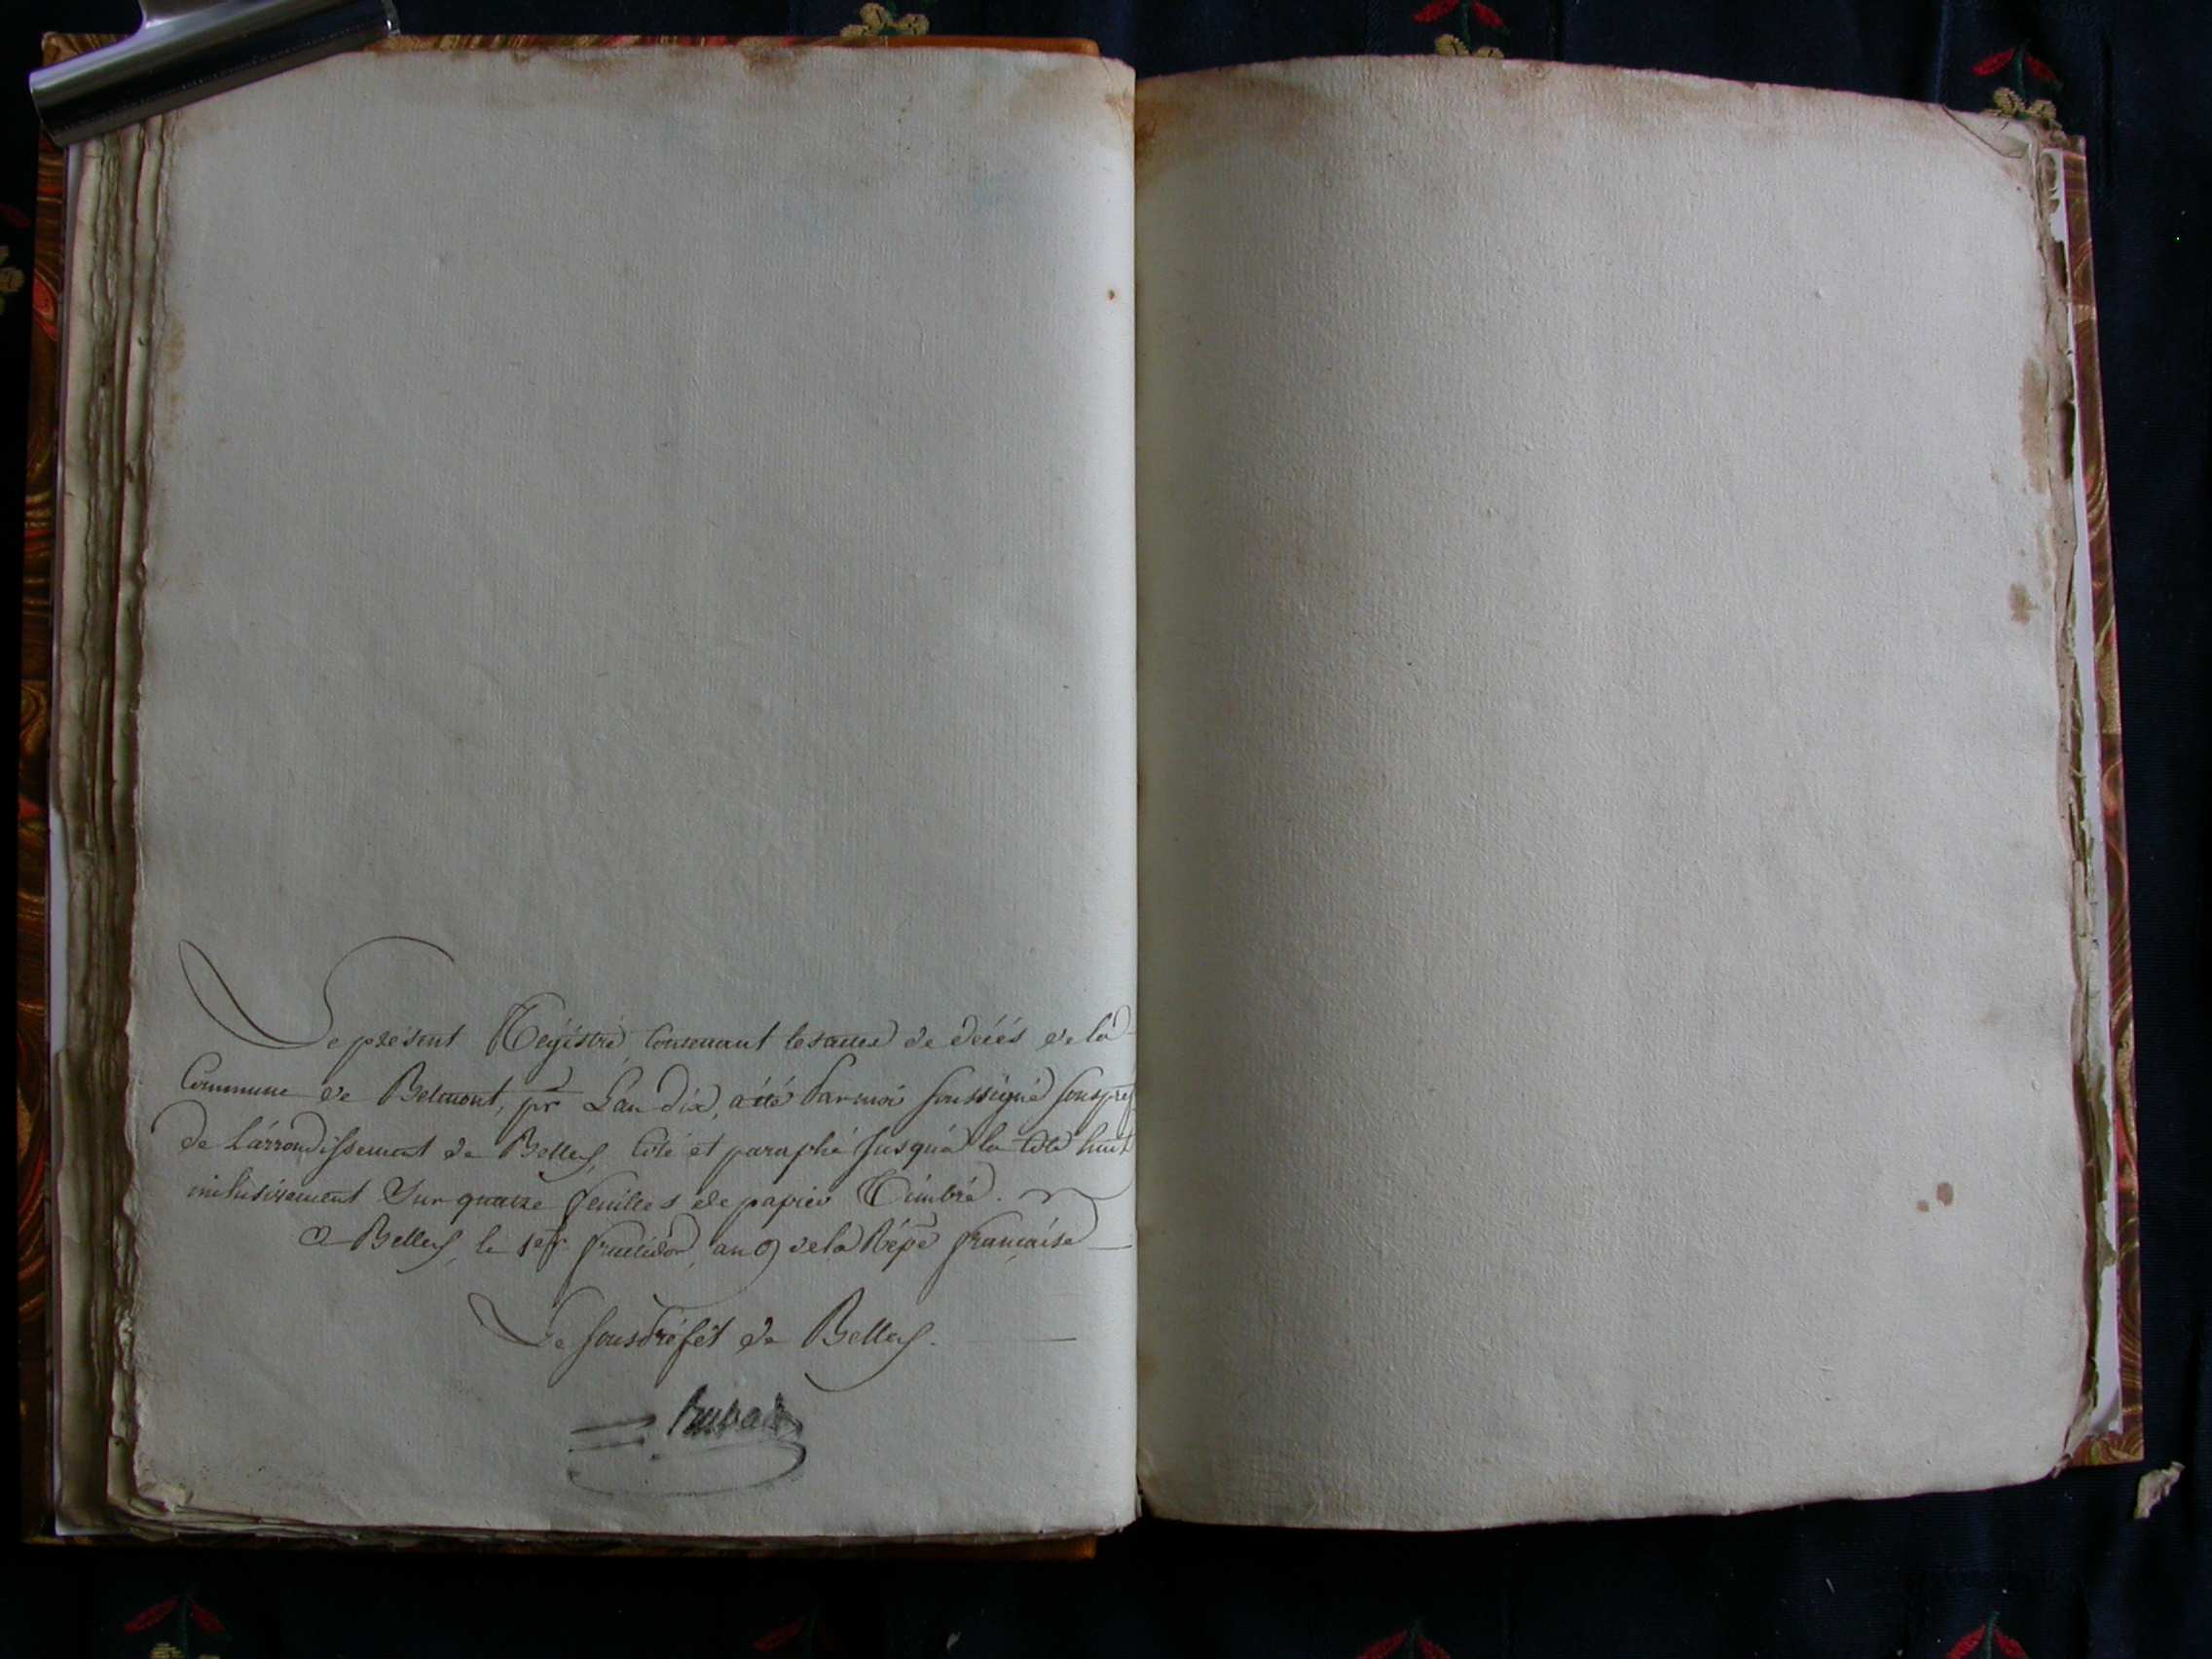 Le présent Régistre Contenant les actes de décés de la
Commune de Belmont, pr L'an dix, a été Par moi soussigné souspref
de L'arrondissement de Belley, Coté et paraphé Jusqu'a la Cote huit
inclusivement Sur quatre feuilles de papier Timbré.
A Belley, le 1er fructidor, an 9 de la Répe française
Le sousPréfet de Belley.